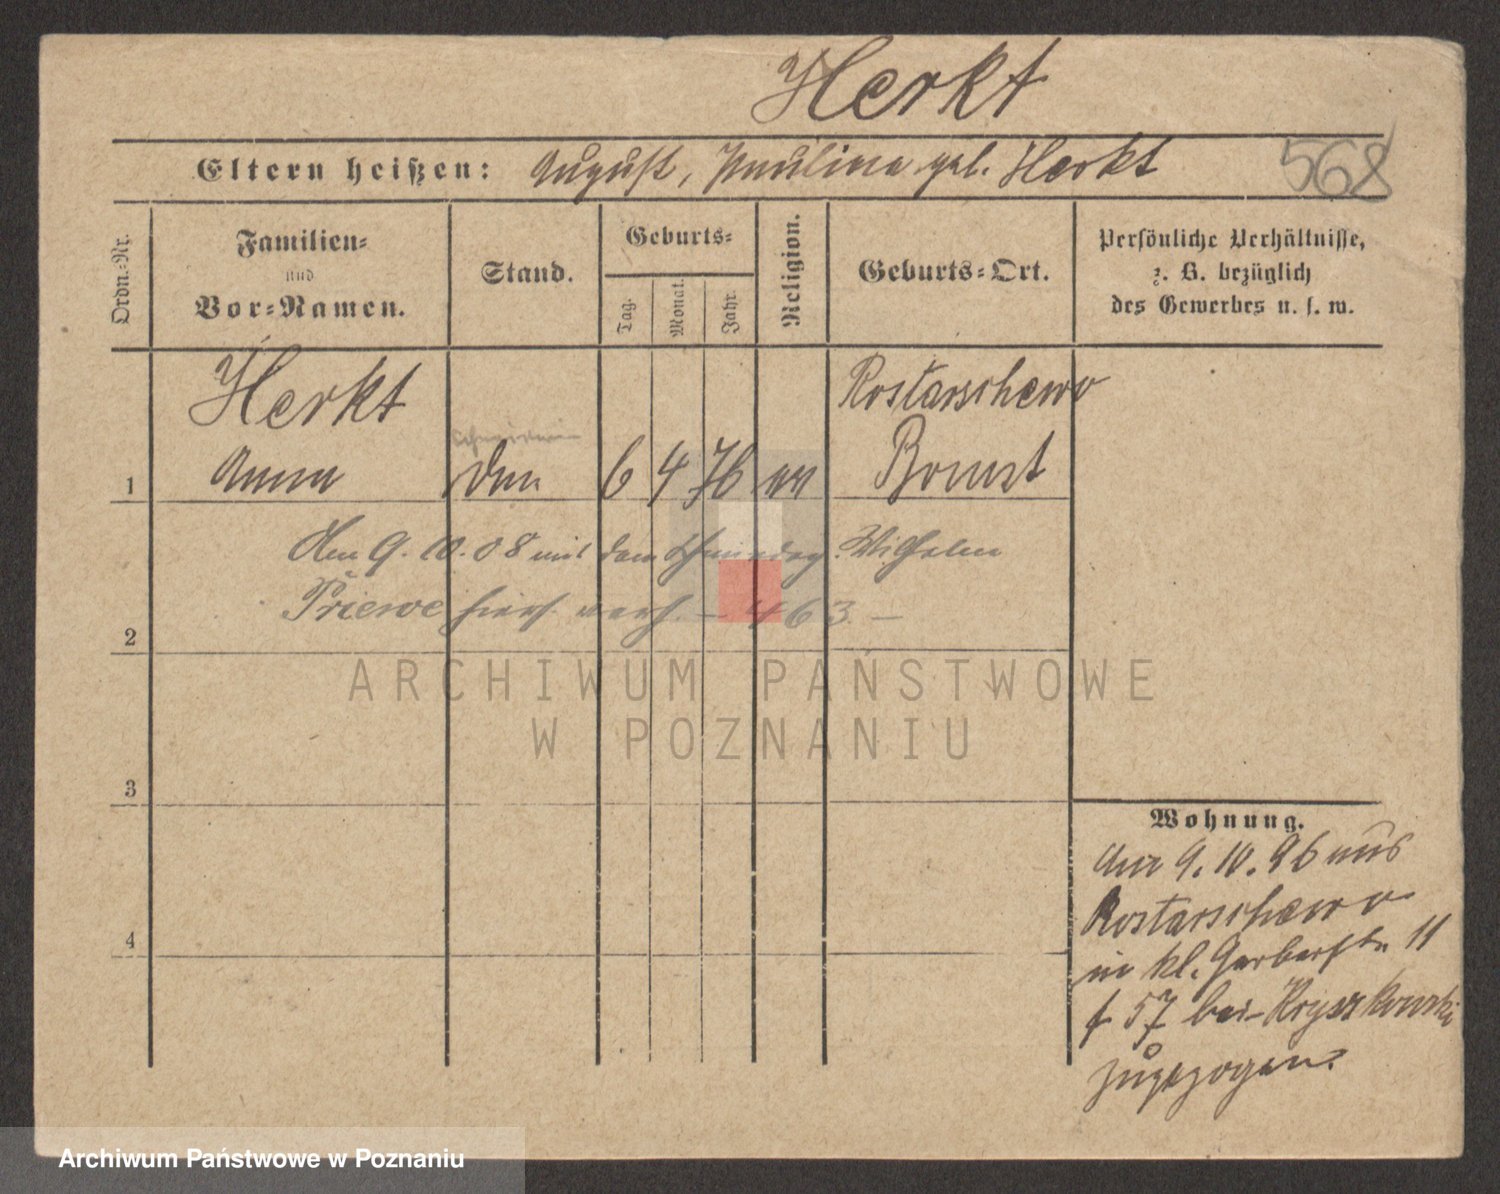 Herkt
Eltern heißen: August, Paulina geb. Herkt
568
Ordn.-Nr.
Familien-
und
Vor-Namen.
Stand.
Geburts-
Tag.
Monat.
Jahr.
Religion.
Geburts-Ort.
Persönliche Verhältnisse,
z. B. bezüglich
des Gewerbes u. s. w.
Herkt
Rostarschewo
1 Anna 6 4 76 ev Bomst
Am 9.10.08 mit dem Wilhelm
2 Priewe hier verh. – 463 –
ARCHIWUM PAŃSTWOWE
W POZNANIU
3
4
Wohnung.
Am 9.10.96 aus
Rostarschewo
in kl. Gerberstr. 11
f 57 bei Kryszkowski
zugezogen.
Archiwum Państwowe w Poznaniu